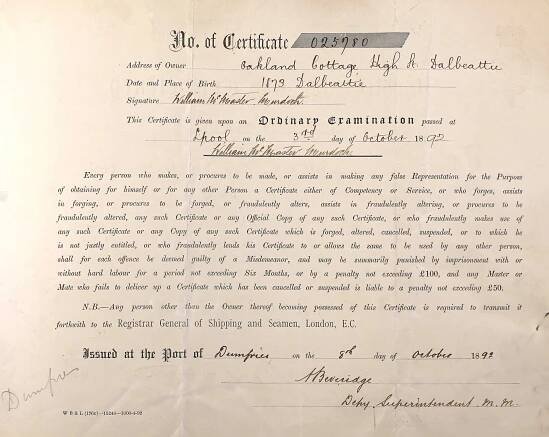 No. of Certificate 025780
Address of Owner Oakland Cottage High St Dalbeattie
Date and Place of Birth 1873 Dalbeattie
Signature William McMaster Murdoch
This Certificate is given upon an Ordinary Examination passed at
Lpool on the 3rd day of October 1892
William McMaster Murdoch
Every person who makes, or procures to be made, or assists in making any false Representation for the Purpose
of obtaining for himself or for any other Person a Certificate either of Competency or Service, or who forges, assists
in forging, or procures to be forged, or fraudulently alters, assists in fraudulently altering, or procures to be
fraudulently altered, any such Certificate or any Official Copy of any such Certificate, or who fraudulently makes use of
any such Certificate or any Copy of any such Certificate which is forged, altered, cancelled, suspended, or to which he
is not justly entitled, or who fraudulently lends his Certificate to or allows the same to be used by any other person,
shall for each offence be deemed guilty of a Misdemeanor, and may be summarily punished by imprisonment with or
without hard labour for a period not exceeding Six Months, or by a penalty not exceeding £100, and any Master or
Mate who fails to deliver up a Certificate which has been cancelled or suspended is liable to a penalty not exceeding £50.
N.B.—Any person other than the Owner thereof becoming possessed of this Certificate is required to transmit it
forthwith to the Registrar General of Shipping and Seamen, London, E.C.
Issued at the Port of Dumfries on the 8th day of October 1892
A Beveridge
Depy. Superintendent M. M.
Dumfries
W B & L (176c)—15244—1000-4-92